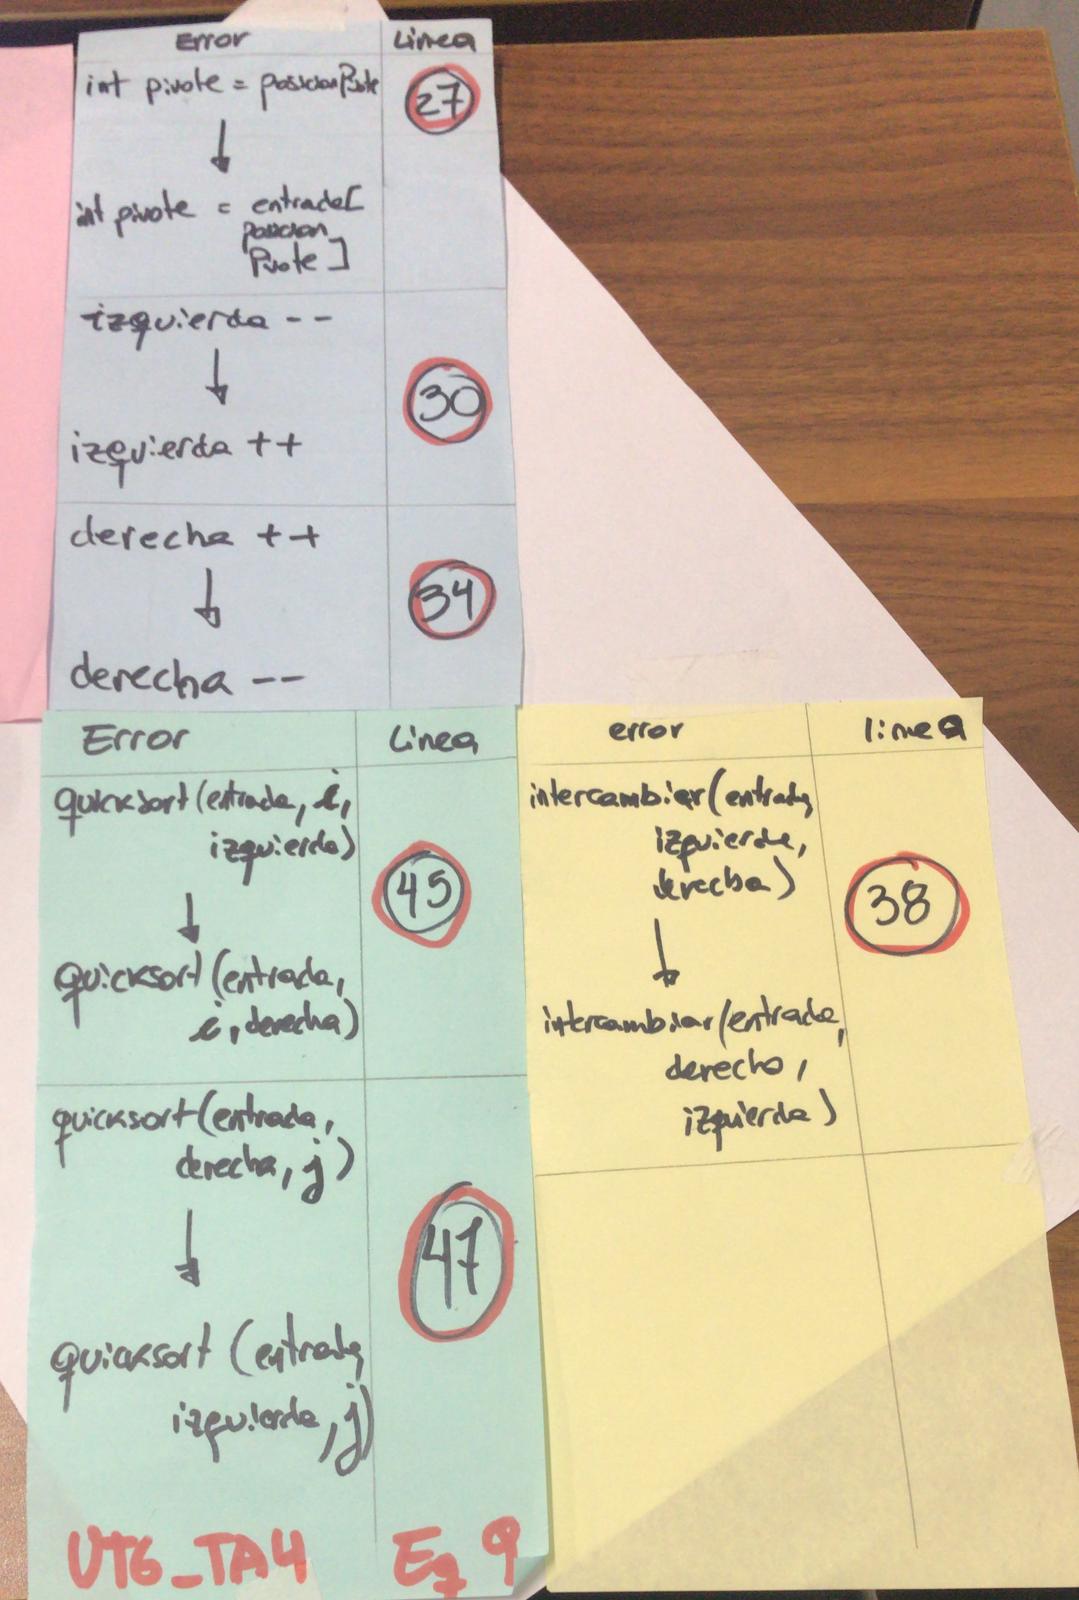 Error Linea
int pivote = posicionPivote 27
int pivote = entrada[
posicion
Pivote ]
izquierda --
30
izquierda ++
derecha ++
34
derecha --
Error Linea
quicksort(entrada, i,
izquierda)
45
quicksort(entrada,
i, derecha)
quicksort(entrada,
derecha, j)
47
quicksort (entrada,
izquierda, j)
UT6_TA4 Ej 9
error linea
intercambiar(entrada,
izquierda,
derecha)
38
intercambiar(entrada,
derecha,
izquierda)